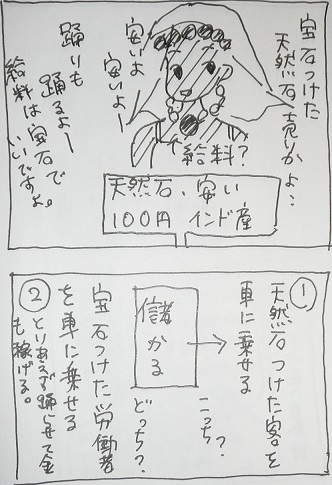 宝石つけた
天然石売りかよ…
安いよ
安いよー
踊りも
踊るよー
給料は宝石で
いいですよ。
給料?
天然石、安い
100円 インド産
①
天然石つけた客を
車に乗せる
こっち?
儲かる
どっち?
宝石つけた労働者
を車に乗せる
②
とりあえず踊らせて金
も稼げる。